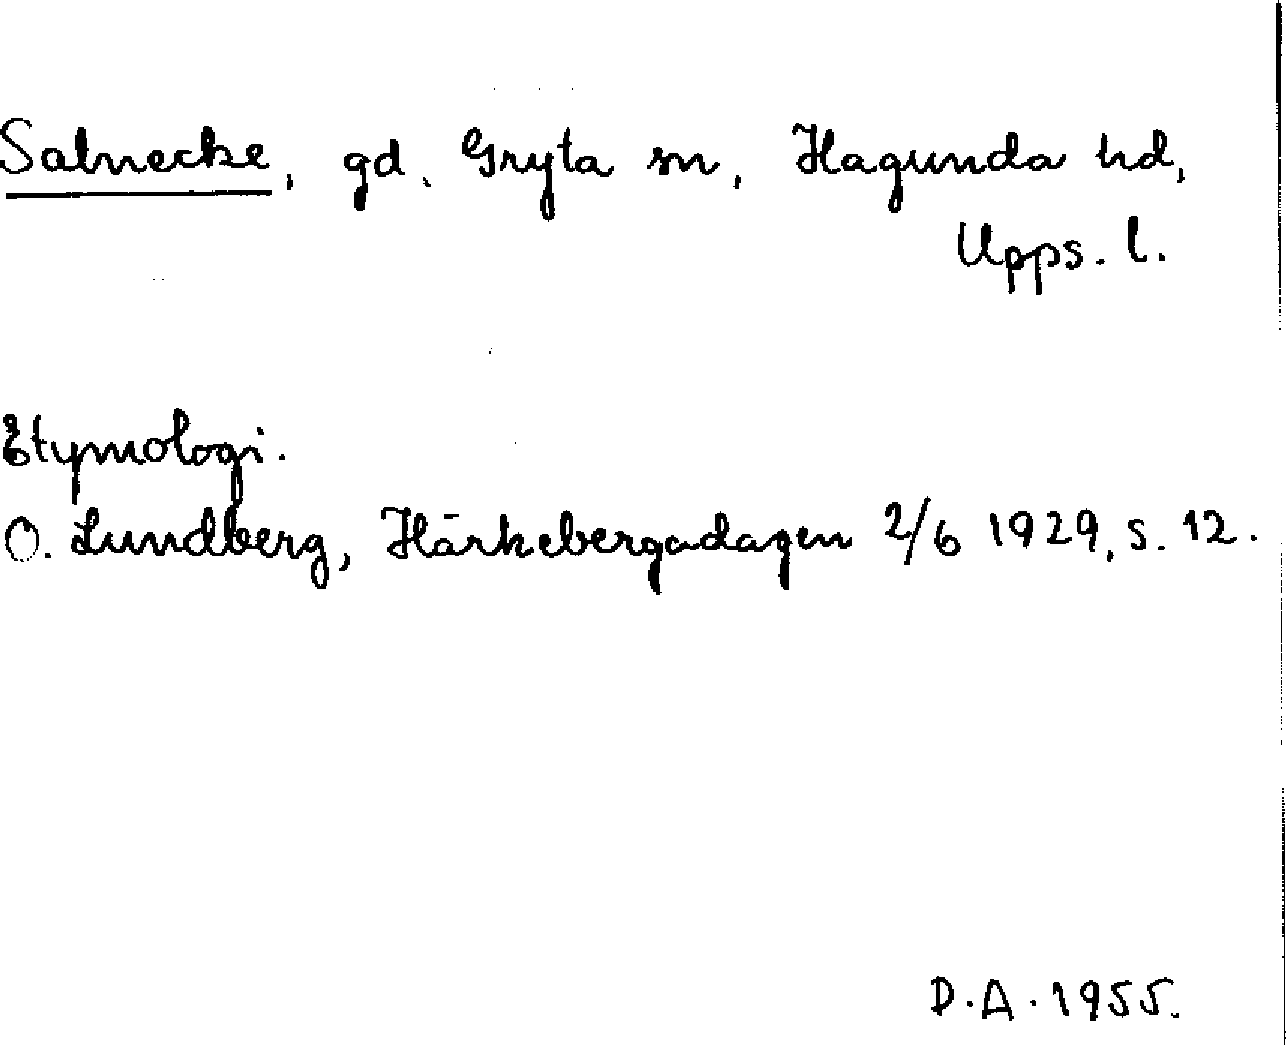 Salnecke, gd, Gryta sn, Hagunda hd,
Upps. l.
Etymologi.
O. Lundberg, Härkebergadagen 2/6 1929, s. 12.
D.A. 1955.